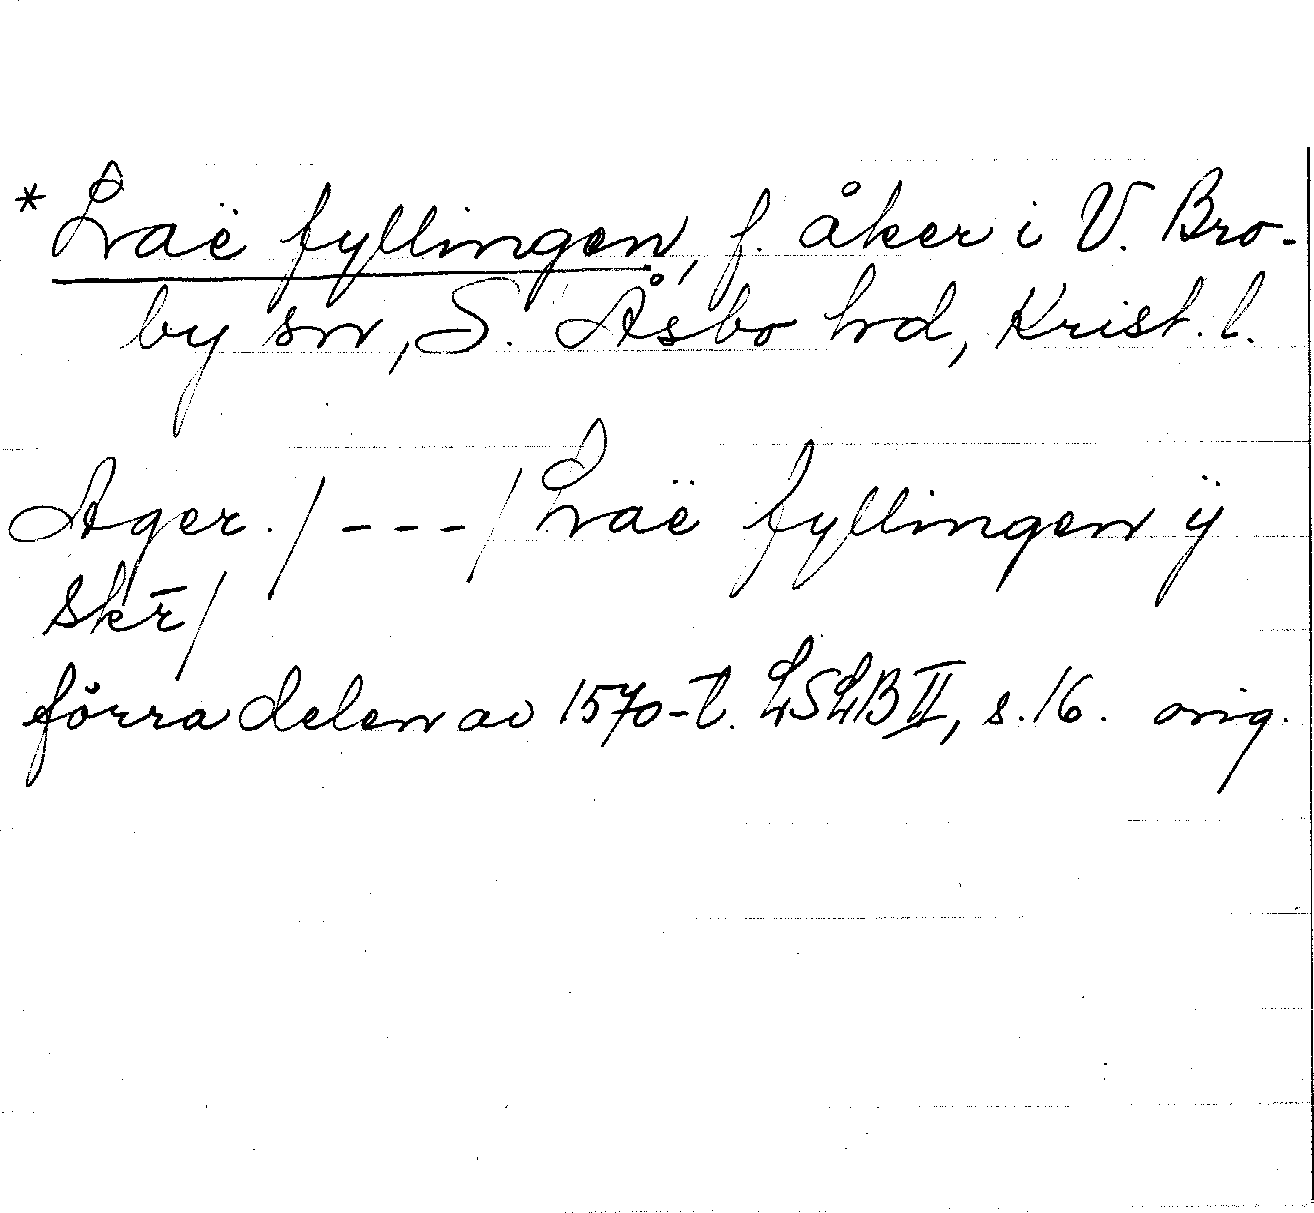 *Lraë fyllingen, f. åker i V. Bro-
by sn, S. Åsbo hd, Krist. l.
Ager. / --- / Lraë fyllingen ÿ
skr̄ /
förra delen av 1570-t. LSLB II, s. 16. orig.